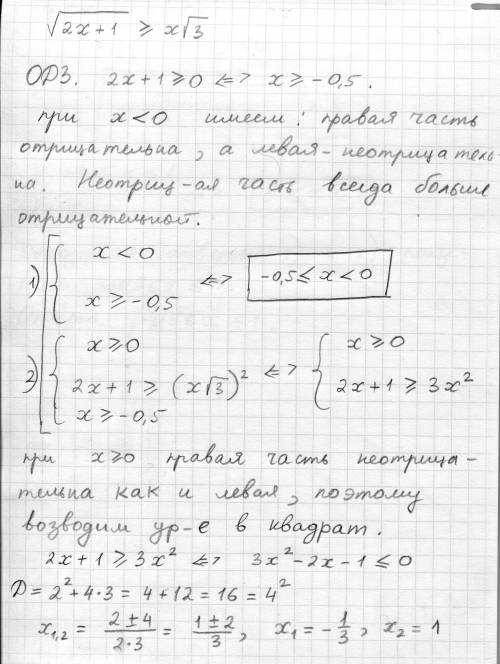 √(2x+1) ≥ x√3
ОДЗ. 2x+1≥0 <=> x≥-0,5.
при x<0 имеем: правая часть
отрицательна, а левая - неотрицатель-
на. Неотриц-ая часть всегда больше
отрицательной.
1) { x<0
x≥-0,5 <=> -0,5≤x<0
2) { x≥0
2x+1≥(x√3)²
x≥-0,5 <=> { x≥0
2x+1≥3x²
при x≥0 правая часть неотрица-
тельна как и левая, поэтому
возводим ур-е в квадрат.
2x+1≥3x² <=> 3x²-2x-1≤0
D=2²+4·3=4+12=16=4²
x₁,₂ = (2±4)/(2·3) = (1±2)/3, x₁=-1/3, x₂=1